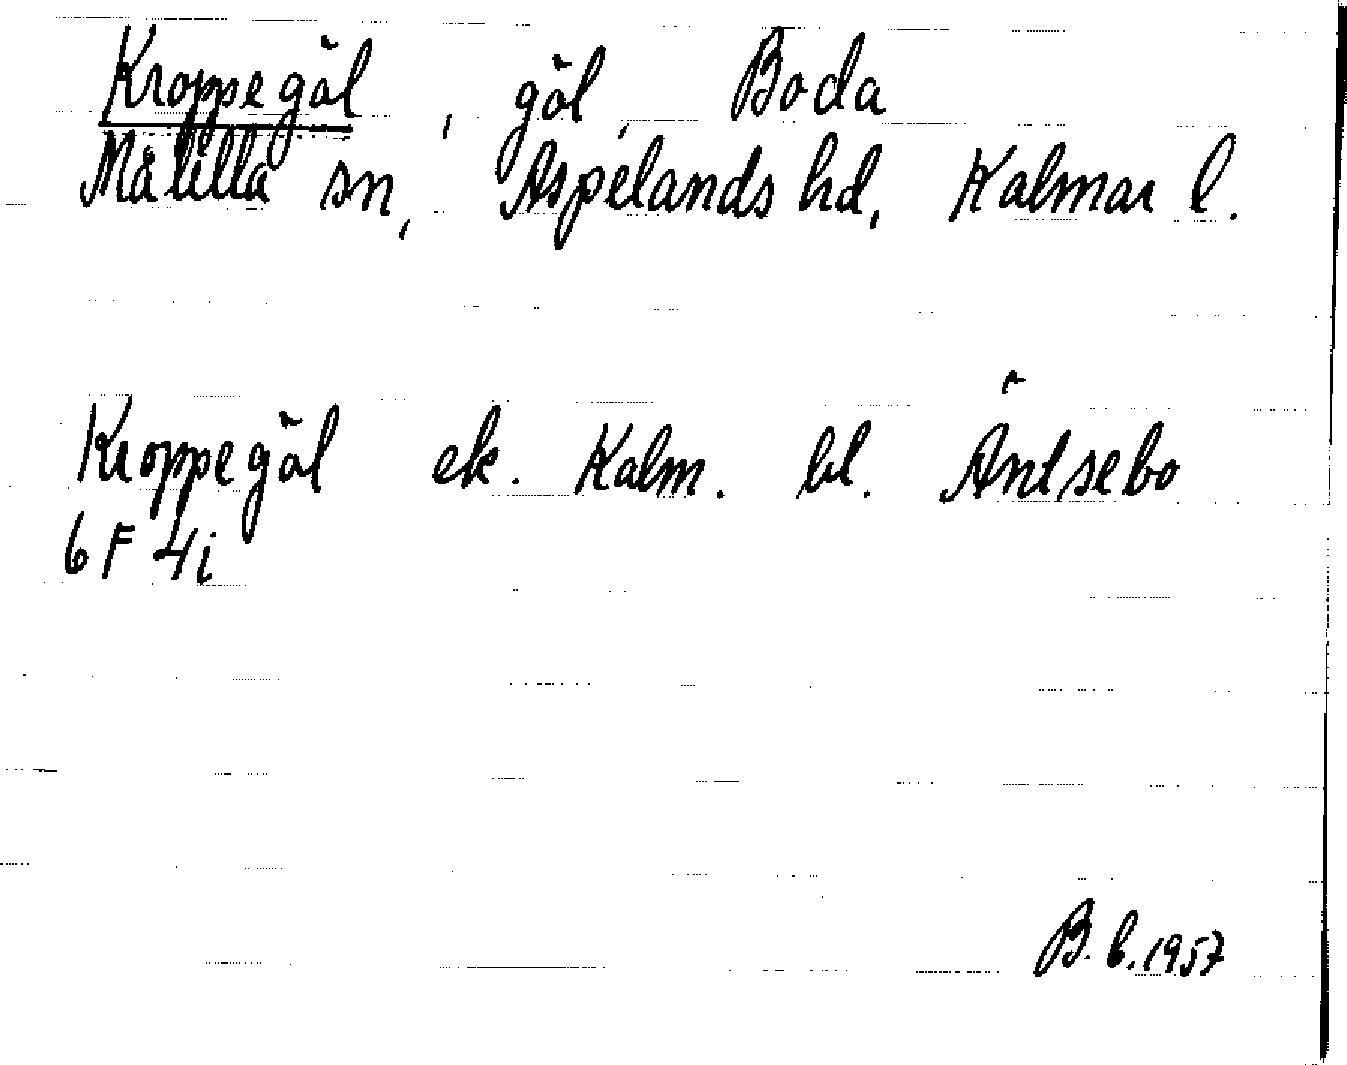 Kroppegöl, göl, Boda
Målilla sn, Aspelands hd, Kalmar l.
Kroppegöl ek. Kalm. bl. Äntsebo
6 F 4i
B. b. 1957